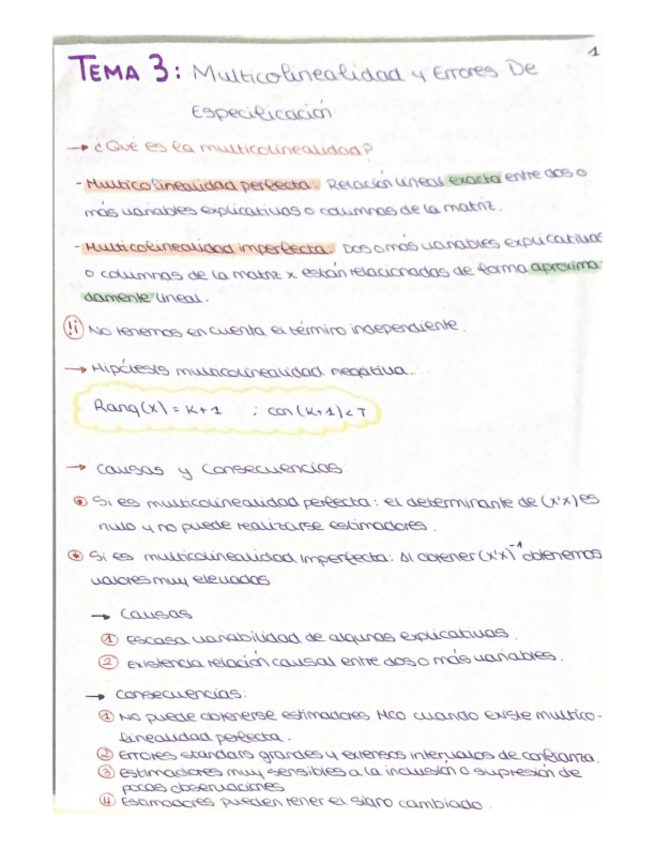 1
TEMA 3: Multicolinealidad y Errores De
Especificación
→ ¿Qué es la multicolinealidad?
- Multicolinealidad perfecta: Relación lineal exacta entre dos o
más variables explicativas o columnas de la matriz.
- Multicolinealidad imperfecta: Dos o más variables explicativas
o columnas de la matriz x están relacionadas de forma aproxima-
damente lineal.
¡! No tenemos en cuenta el término independiente.
→ Hipótesis multicolinealidad negativa.
Rang(x) = K+1 ; con (K+1)<T
→ Causas y Consecuencias
• Si es multicolinealidad perfecta: el determinante de (x'x) es
nulo y no puede realizarse estimadores.
• Si es multicolinealidad imperfecta: Al obtener (x'x)⁻¹ obtenemos
valores muy elevados
→ Causas
① Escasa variabilidad de algunas explicativas.
② Existencia relación causal entre dos o más variables.
→ Consecuencias:
① No puede obtenerse estimadores MCO cuando existe multico-
linealidad perfecta.
② Errores standars grandes y extensos intervalos de confianza.
③ Estimadores muy sensibles a la inclusión o supresión de
pocas observaciones
④ Estimadores pueden tener el signo cambiado.